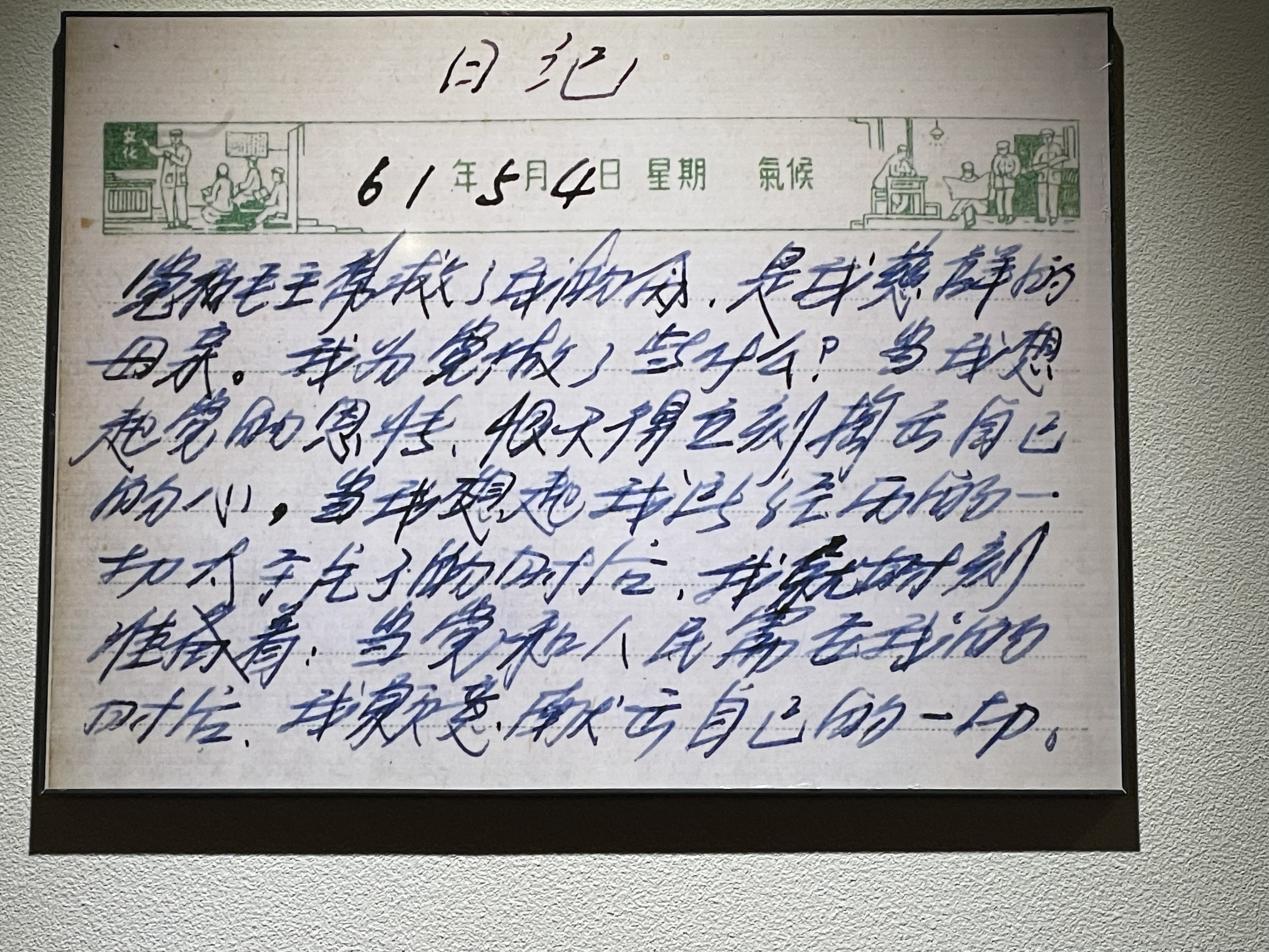 日记
文化
61年5月4日 星期 氣候
党和毛主席救了我的命，是我慈祥的
母亲。我为党做了些什么？当我想
起党的恩情，恨不得立刻掏出自己
的心，当我想起我所经历的一
切太平凡了的时候，我就时刻
准备着：当党和人民需要我的
时候，我愿意献出自己的一切。